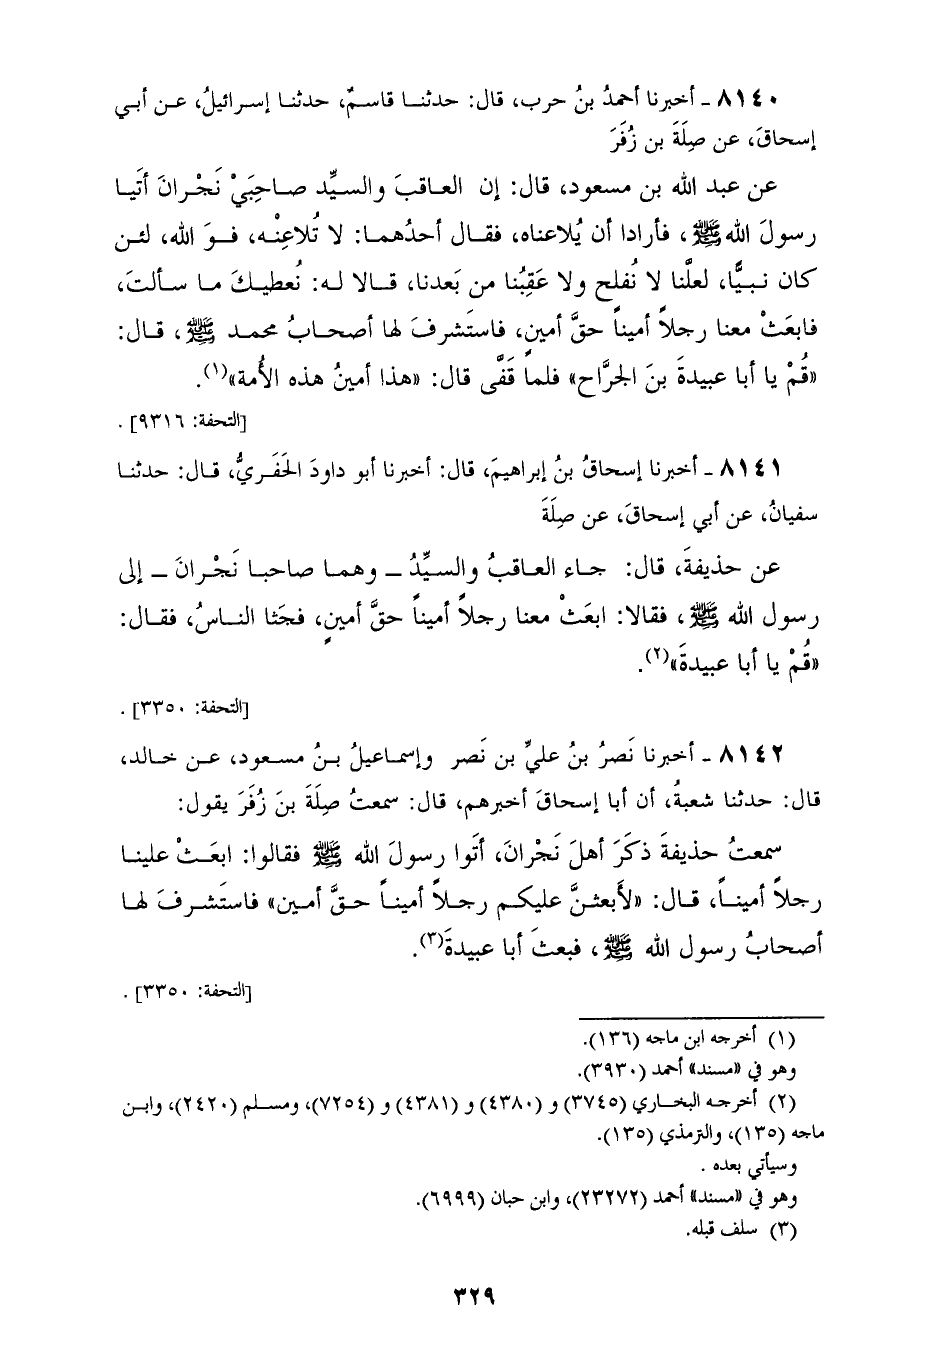 ٨١٤٠ ـ أخبرنا أحمدُ بنُ حرب، قال: حدثنا قاسمٌ، حدثنا إسرائيلُ، عن أبي
إسحاقَ، عن صِلَةَ بن زُفَرَ
عن عبد الله بن مسعود، قال: إن العاقبَ والسيِّد صاحِبَيْ نَجْرانَ أتَيا
رسولَ الله ﷺ، فأرادا أن يُلاعناه، فقال أحدُهما: لا تُلاعِنْه، فوَ الله، لئن
كان نبيًّا، لعلَّنا لا نُفلح ولا عَقِبُنا من بَعدنا، قالا له: نُعطيكَ ما سألتَ،
فابعَثْ معنا رجلاً أميناً حقَّ أمينٍ، فاستَشرفَ لها أصحابُ محمد ﷺ، قال:
«قُمْ يا أبا عبيدةَ بنَ الجرَّاح» فلما قَفَّى قال: «هذا أمينُ هذه الأُمة»(١).
[التحفة: ٩٣١٦] .
٨١٤١ ـ أخبرنا إسحاقُ بنُ إبراهيمَ، قال: أخبرنا أبو داودَ الحَفَريُّ، قال: حدثنا
سفيانُ، عن أبي إسحاقَ، عن صِلَةَ
عن حذيفةَ، قال: جاء العاقبُ والسيِّدُ ـ وهما صاحبا نَجْرانَ ـ إلى
رسول الله ﷺ، فقالا: ابعَثْ معنا رجلاً أميناً حقَّ أمينٍ، فجَثا الناسُ، فقال:
«قُمْ يا أبا عبيدةَ»(٢).
[التحفة: ٣٣٥٠] .
٨١٤٢ ـ أخبرنا نَصرُ بنُ عليِّ بن نَصر وإسماعيلُ بنُ مسعود، عن خالد،
قال: حدثنا شعبةُ، أن أبا إسحاقَ أخبرهم، قال: سمعتُ صِلَةَ بنَ زُفَرَ يقول:
سمعتُ حذيفةَ ذكَرَ أهلَ نَجْرانَ، أتَوا رسولَ الله ﷺ فقالوا: ابعَثْ علينا
رجلاً أميناً، قال: «لأَبعثنَّ عليكم رجلاً أميناً حقَّ أمين» فاستَشرفَ لها
أصحابُ رسول الله ﷺ، فبعثَ أبا عبيدةَ(٣).
[التحفة: ٣٣٥٠] .
(١) أخرجه ابن ماجه (١٣٦).
وهو في «مسند» أحمد (٣٩٣٠).
(٢) أخرجه البخاري (٣٧٤٥) و (٤٣٨٠) و (٤٣٨١) و (٧٢٥٤)، ومسلم (٢٤٢٠)، وابن
ماجه (١٣٥)، والترمذي (١٣٥).
وسيأتي بعده .
وهو في «مسند» أحمد (٢٣٢٧٢)، وابن حبان (٦٩٩٩).
(٣) سلف قبله.
٣٢٩